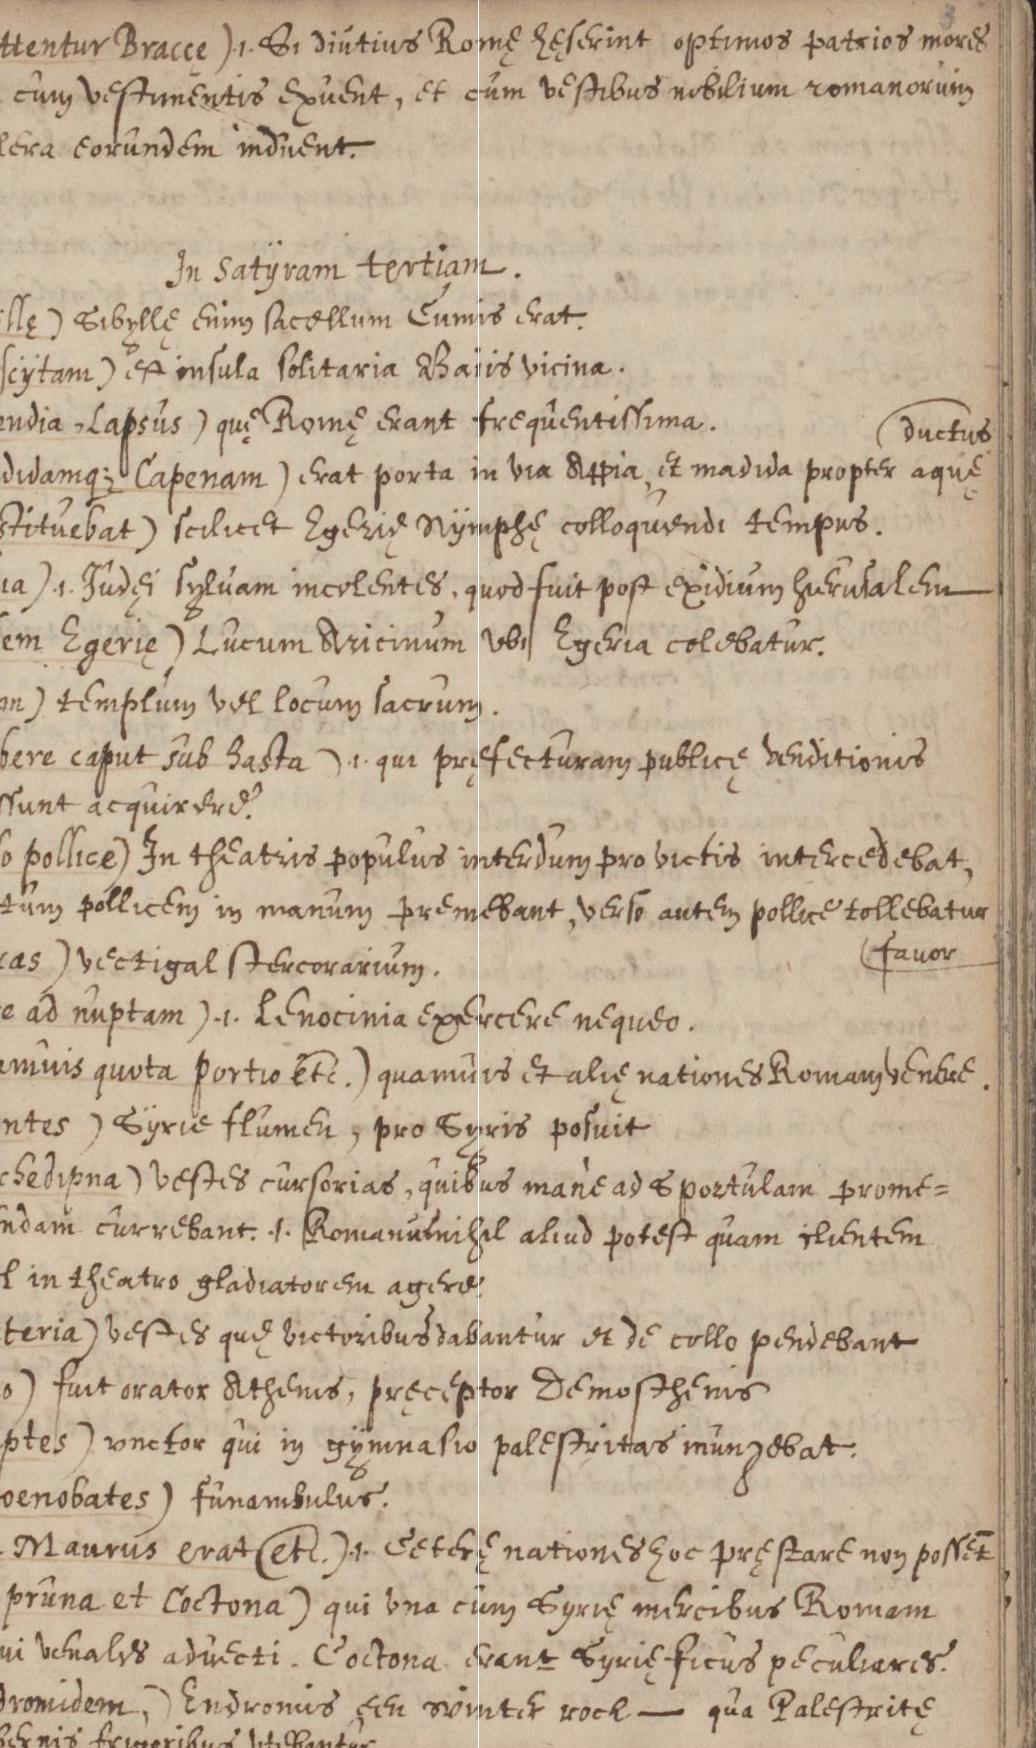 ttentur Bracce) .i. Si diutius Romę hęserint optimos patrios mores
cum vestimentis exuent, et cum vestibus nobilium romanorum
lera eorundem induent.
In Satÿram tertiam.
llę) Sibÿllę enim sacellum Cumis erat.
scÿtam) est insula solitaria Baiis vicina.
endia, Lapsus) quę Romę erant frequentissima.
ductus
didamq; Capenam) erat porta in via Appia, et madida propter aquę
stituebat) scilicet Egerię Nÿmphę colloquendi tempus.
ia) .i. Judęi sÿlvam incolentes, quod fuit post exidium hierusalem
lem Egerię) Lucum Aricinum ubi Egeria colebatur.
m) templum vel locum sacrum.
bere caput sub hasta) .i. qui pręfecturam publicę venditionis
ssunt acquirere.
so pollice) In theatris populus interdum pro victis intercedebat,
tum pollicem in manum premebant, verso autem pollice tollebatur
favor
cas) vectigal stercorarium.
e ad nuptam) .i. Lenocinia exercere nequeo.
amuis quota portio etc.) quamuis et alię nationes Romam venere.
ntes) Sÿrie flumen, pro Syris posuit
chedipna) vestes cursorias, quibus mane ad sportulam prome=
ndam currebant. .i. Romanus nihil aliud potest quam clientem
l in theatro gladiatorem agere.
teria) vestes quę victoribus dabantur et de collo pendebant
o) fuit orator Athenis, pręceptor Demosthenis
ptes) unctor qui in gÿmnasio palestritas inungebat.
oenobates) funambulus.
Maurus erat etc.) .i. Ceterę nationes hoc pręstare non possēt
pruna et Coctona) qui una cum Syrię mercibus Romam
ui venales advecti. Coctona erant Syrię ficus peculiares.
dromidem,) Endromis een winter rock — qua Palestritę
bernis frigoribus utebantur